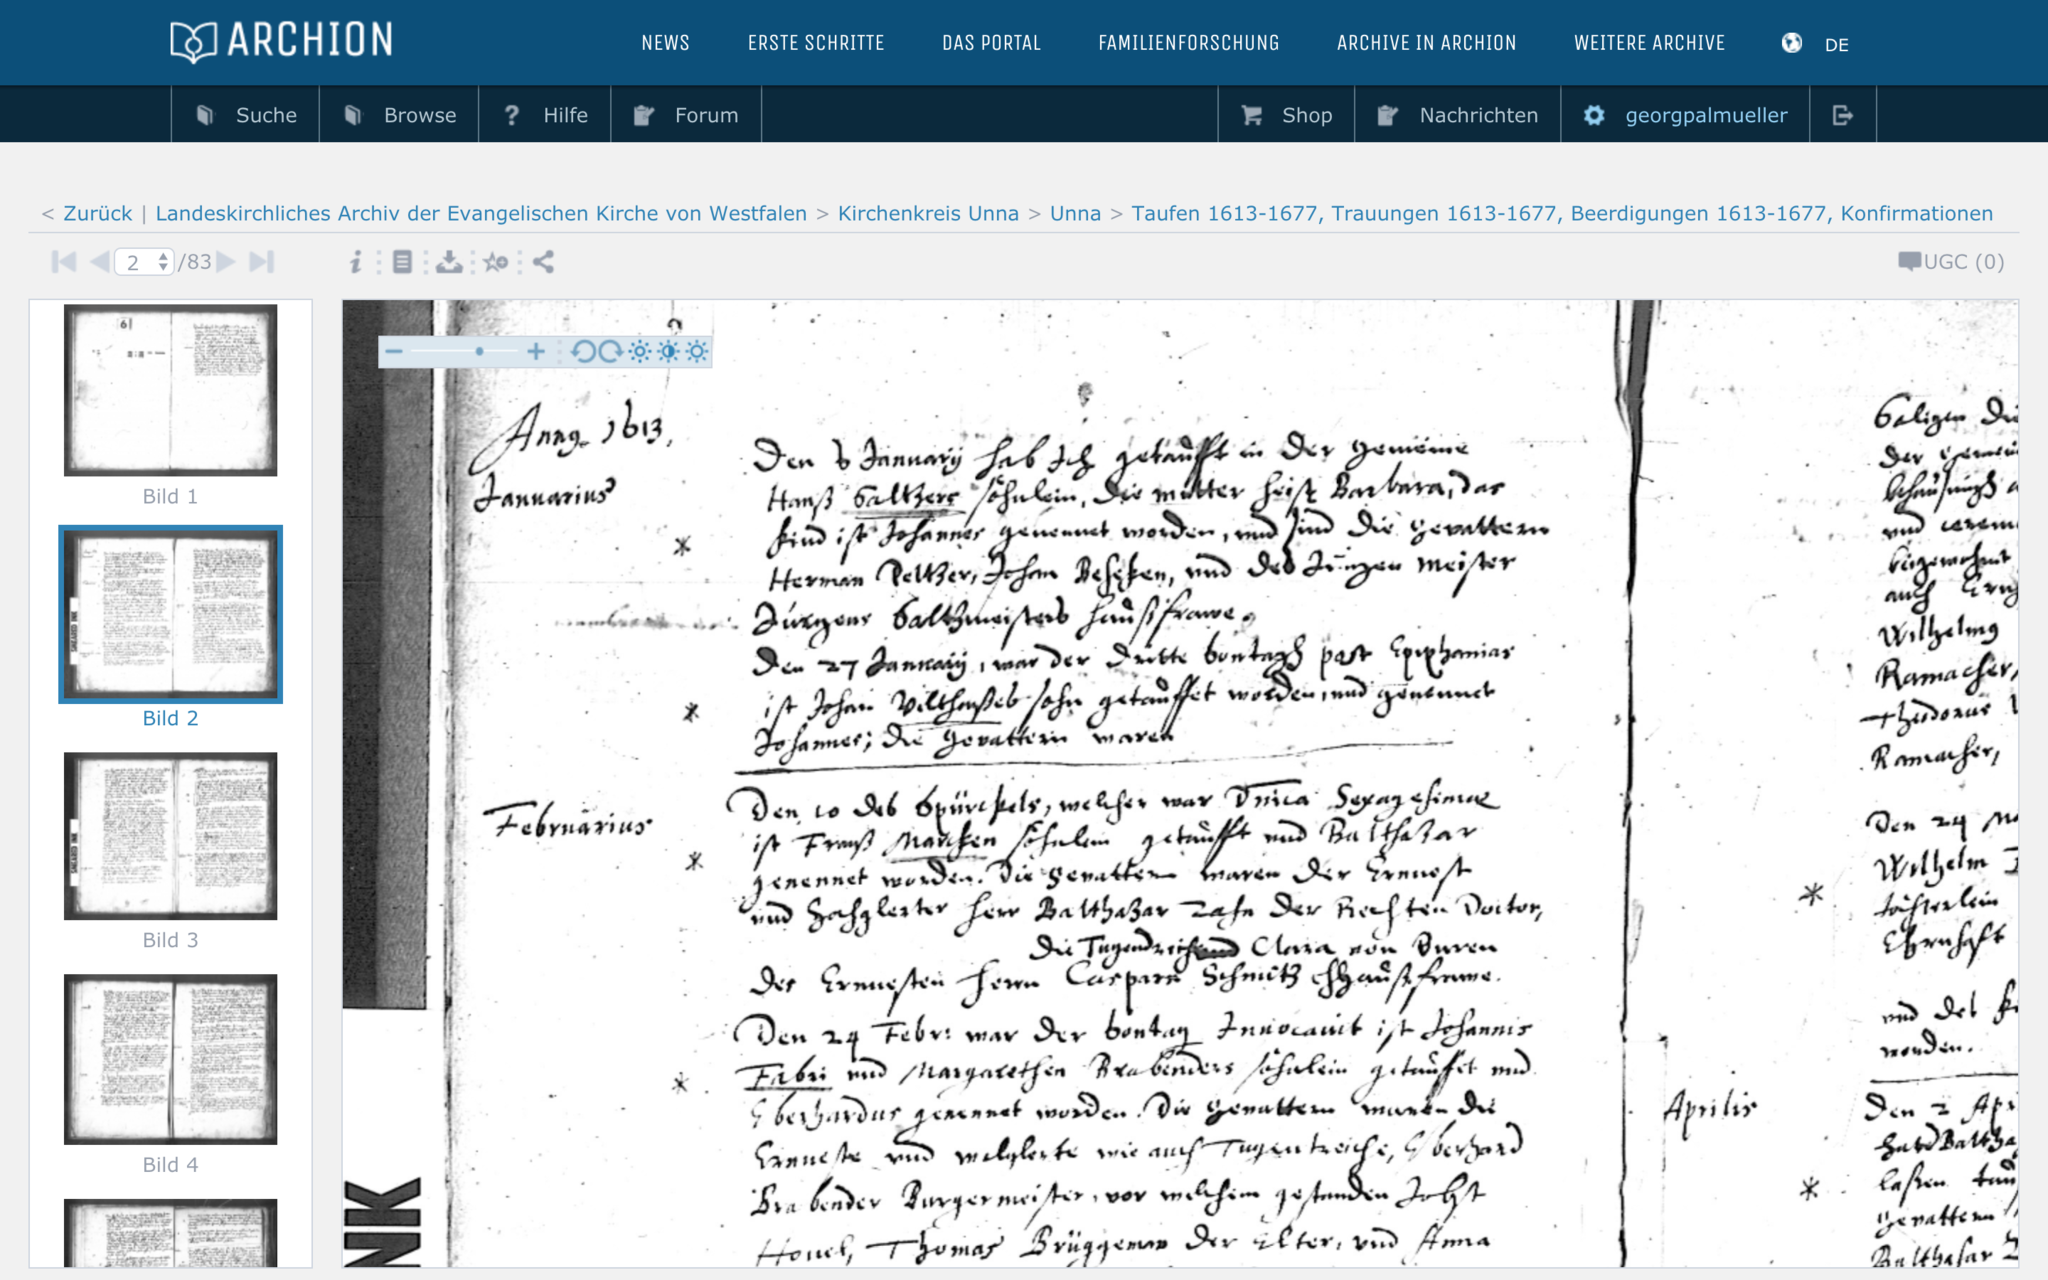 ARCHION
NEWS
ERSTE SCHRITTE
DAS PORTAL
FAMILIENFORSCHUNG
ARCHIVE IN ARCHION
WEITERE ARCHIVE
DE
Suche
Browse
Hilfe
Forum
Shop
Nachrichten
georgpalmueller
< Zurück | Landeskirchliches Archiv der Evangelischen Kirche von Westfalen > Kirchenkreis Unna > Unna > Taufen 1613-1677, Trauungen 1613-1677, Beerdigungen 1613-1677, Konfirmationen
2 /83
UGC (0)
Bild 1
Bild 2
Bild 3
Bild 4
Anno 1613,
Januarius
Den 6 January hab Ich getaufft in der gemeine
Hanß Saltzers söhnlein, die mutter heist Barbara, das
kind ist Johannes genennet worden, und sind die gevattern
Herman Peltzer, Johan und des Jungen meister
Jürgens Saltzmeisters haußfrawe.
Den 27 January, war der dritte Sontagh post Epiphanias
ist Johan Vilthaßes sohn getauffet worden, und genennet
Johannes; die gevattern waren
Februarius
Den 10 des Spürckels, welcher war Dnica Sexagesimae
ist Franß Marcken söhnlein getaufft und Balthazar
genennet worden. Die gevattern waren der Ernvest
und Hochglerter herr Balthazar Zahn der Rechten Doctor,
die Tugendreich Clara von Duren
des Ernvesten herrn Casparn Schmitz Ehhaußfrawe.
Den 24 Febr: war der Sontag Invocavit ist Johannis
Fabri und Margarethen Brabenders söhnlein getauffet und
Eberhardus genennet worden. Die gevattern waren die
Ernveste und wolglerte wie auch Tugentreiche, Eberhard
Brabender Burgermeister, vor welchem gestanden Jobst
Hovel, Thomas Brüggeman der Elter, und Anna
Saligen die
der
und
auch
Wilhelmus
Ramacher,
Theodorus
Ramacher,
Den 24
Wilhelm
töchterlein
Ehrnhafft
und des
worden.
Aprilis
Den 2 Apr
laßen
gevattern
Balthasar
NK